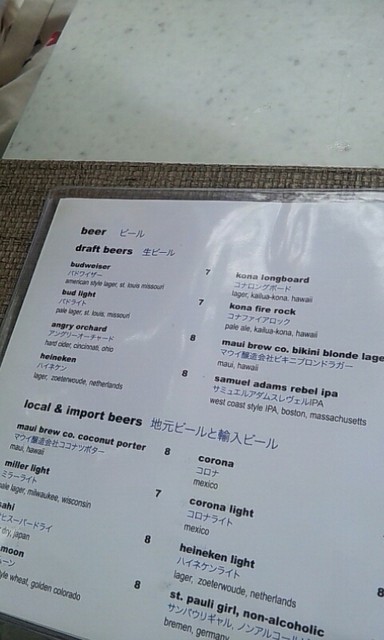 beer ビール
draft beers 生ビール
budweiser 7
バドワイザー
american style lager, st. louis missouri
bud light 7
バドライト
pale lager, st. louis, missouri
angry orchard 8
アングリーオーチャード
hard cider, cincinnati, ohio
heineken 8
ハイネケン
lager, zoeterwoude, netherlands
kona longboard
コナロングボード
lager, kailua-kona, hawaii
kona fire rock
コナファイアロック
pale ale, kailua-kona, hawaii
maui brew co. bikini blonde lage
マウイ醸造会社ビキニブロンドラガー
maui, hawaii
samuel adams rebel ipa
サミュエルアダムスレヴェルIPA
west coast style IPA, boston, massachusetts
local & import beers 地元ビールと輸入ビール
maui brew co. coconut porter 8
マウイ醸造会社ココナツポター
maui, hawaii
miller light 7
ミラーライト
pale lager, milwaukee, wisconsin
sahi 8
ヒスーパードライ
dry, japan
moon 8
ムーン
tyle wheat, golden colorado
corona
コロナ
mexico
corona light
コロナライト
mexico
heineken light 8
ハイネケンライト
lager, zoeterwoude, netherlands
st. pauli girl, non-alcoholic
サンパウリギャル, ノンアルコール
bremen, germany